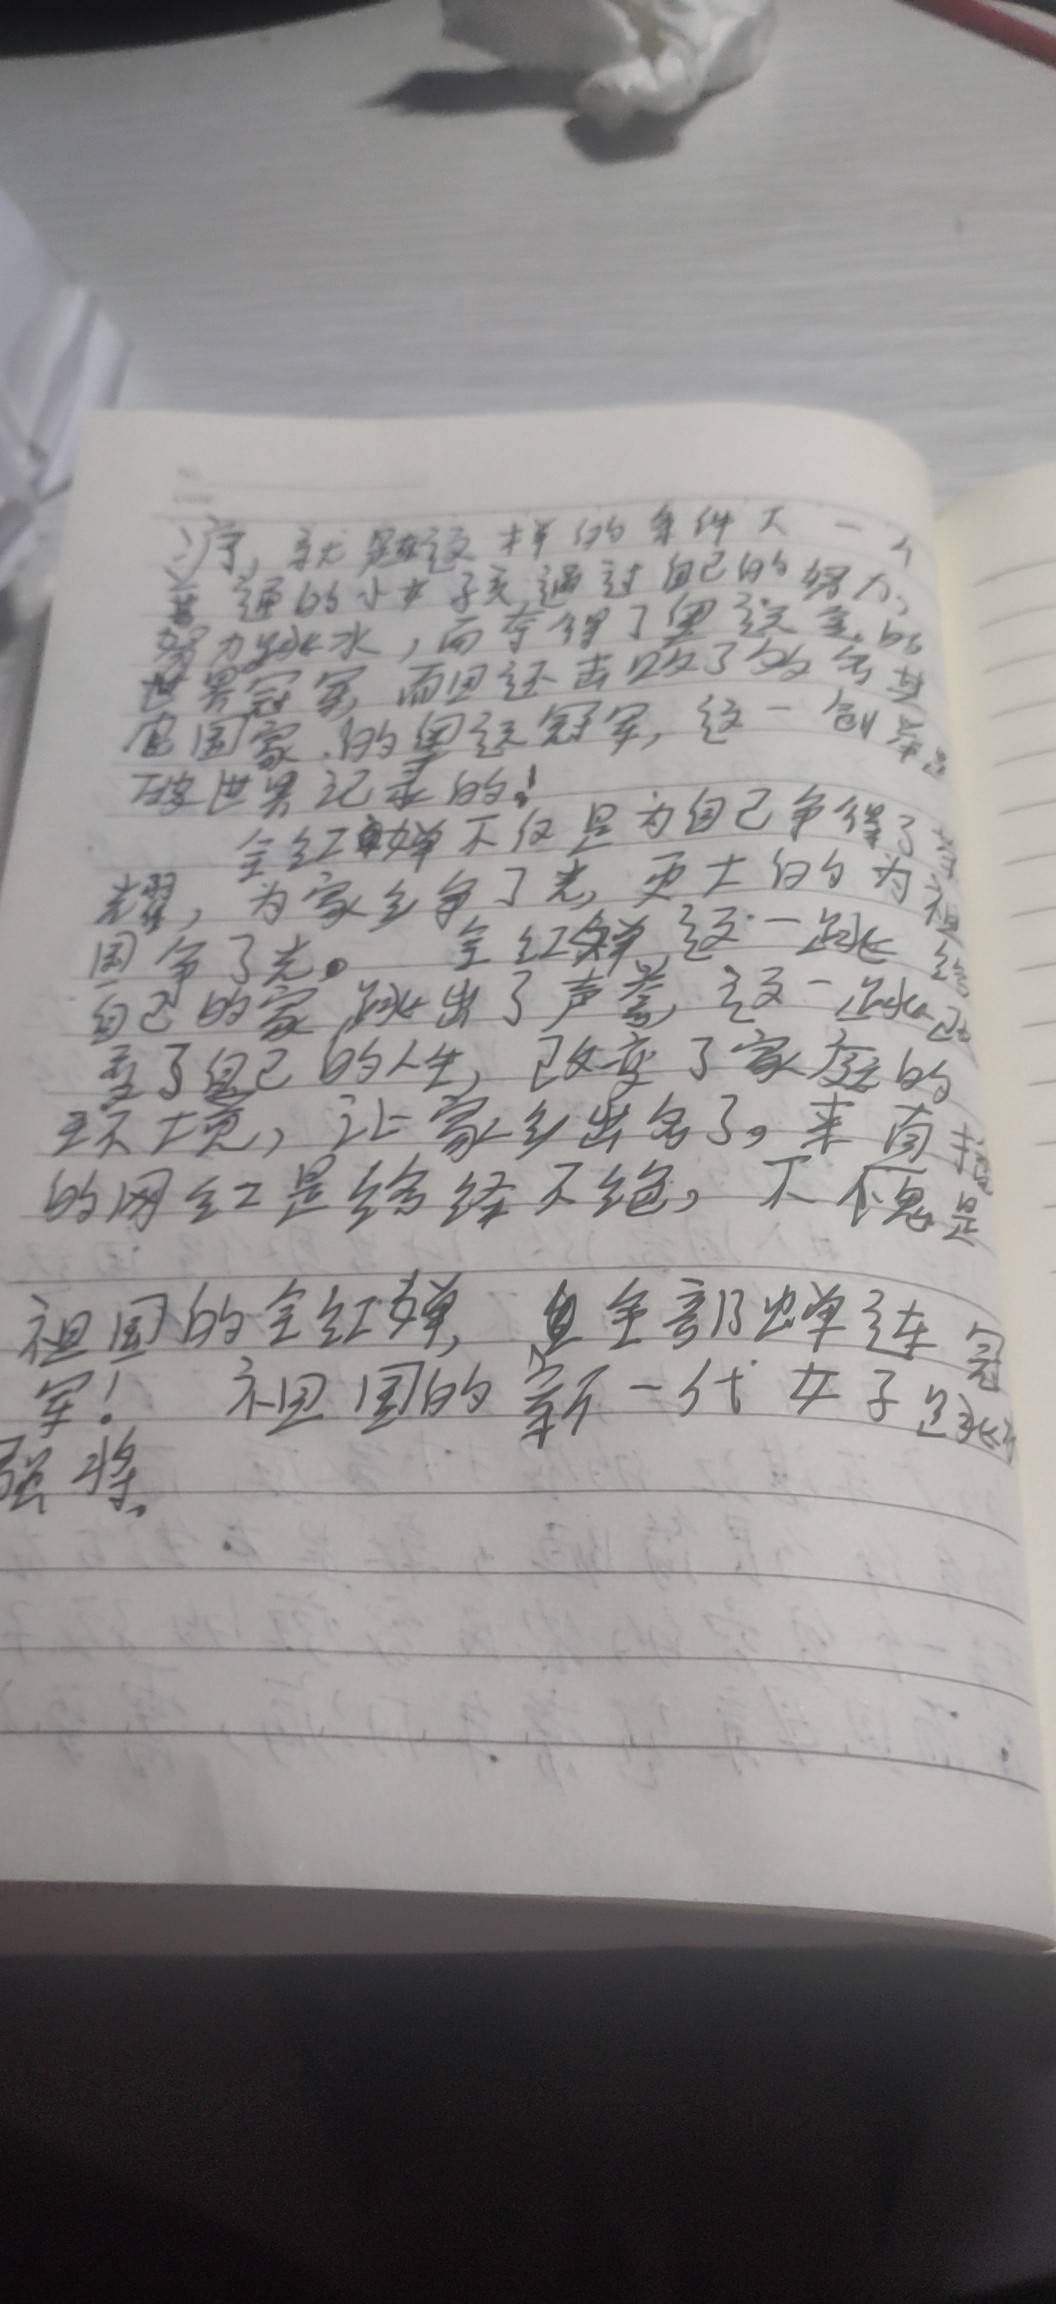 字, 就是这样的条件下一个
普通的小女孩, 通过自己的努力,
努力跳水, 而夺得了奥运会的
世界冠军, 而且还击败了
国家的奥运冠军, 这一创举是
破世界记录的!
全红婵不仅是为自己争得了
光耀, 为家乡争了光, 更大的为祖
国争了光。 全红婵, 这一跳给
自己的家跳出了声誉, 这一跳改
变了自己的人生, 改变了家庭的
环境, 让家乡出名了。来直播
的网红是络绎不绝, 不愧是
祖国的全红婵, 全部蝉连冠
军! 祖国的新一代女子跳水
强将。